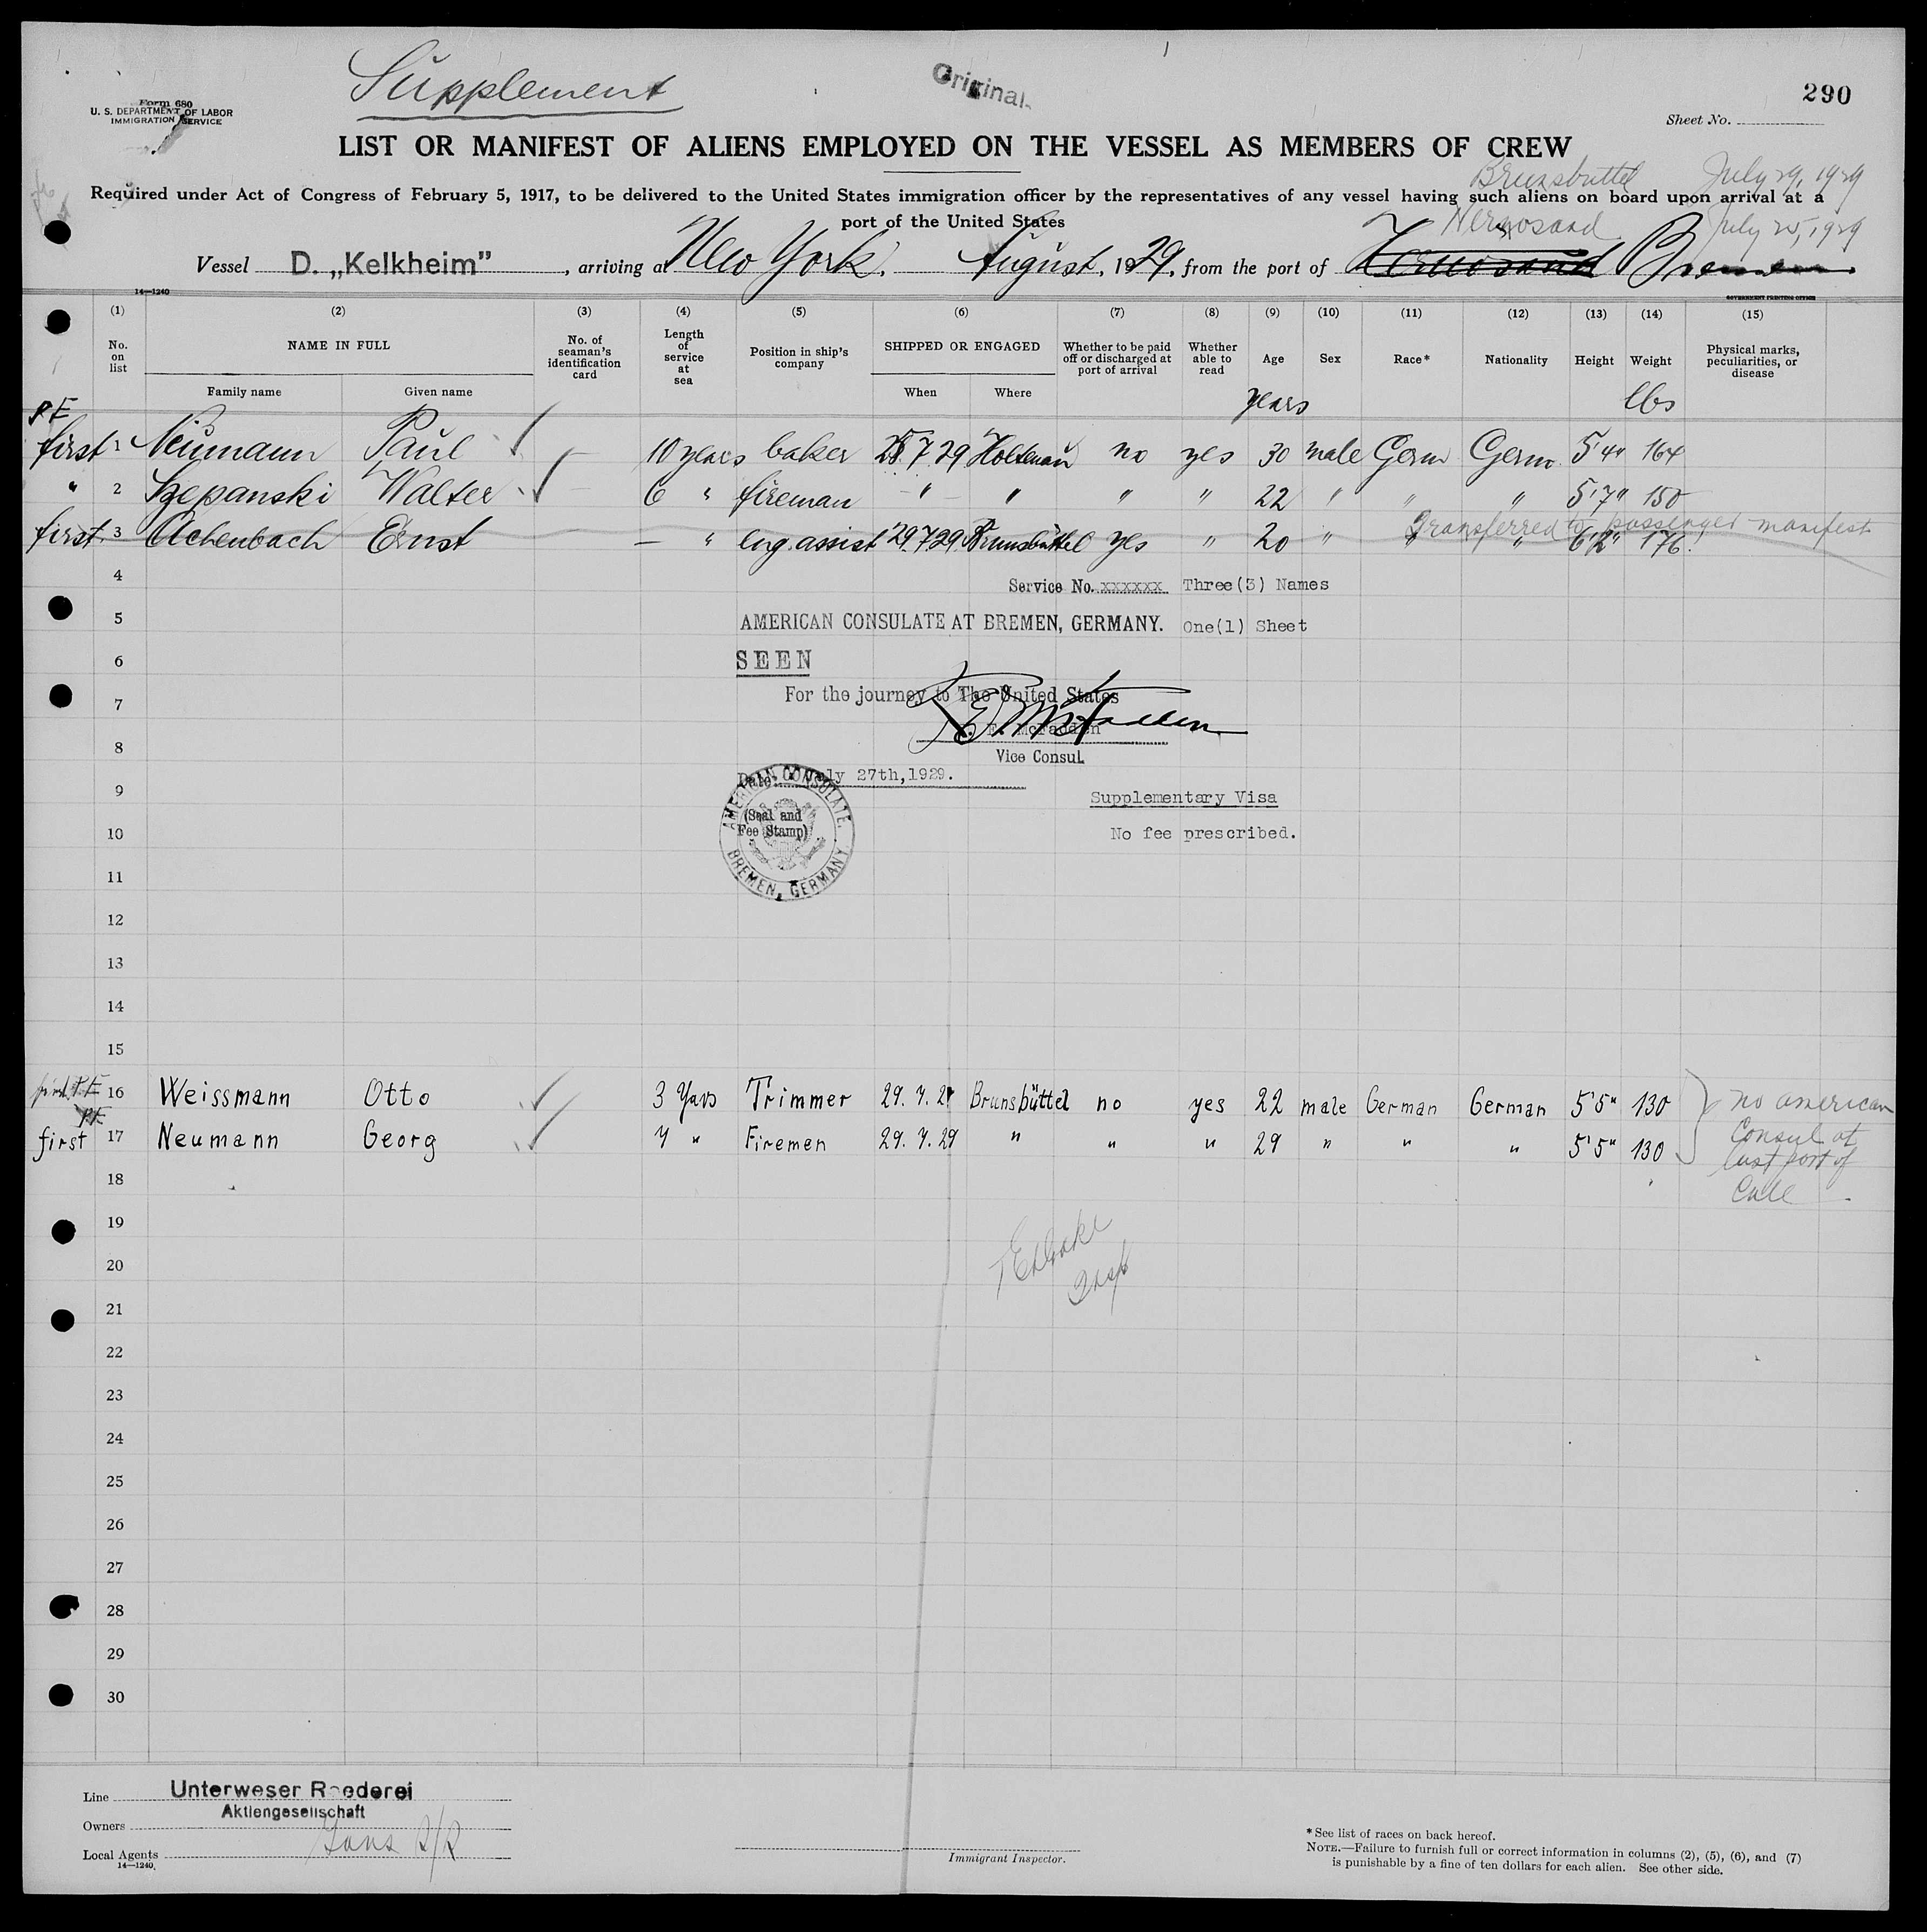 Supplement
Original
290
Form 680
U. S. DEPARTMENT OF LABOR
IMMIGRATION SERVICE
Sheet No.
LIST OR MANIFEST OF ALIENS EMPLOYED ON THE VESSEL AS MEMBERS OF CREW
Brunsbüttel July 29, 1929
Required under Act of Congress of February 5, 1917, to be delivered to the United States immigration officer by the representatives of any vessel having such aliens on board upon arrival at a
port of the United States
Hernosand July 25, 1929
Vessel D. „Kelkheim”, arriving at New York. August, 1929, from the port of Hernosand Bremen
14—1240
GOVERNMENT PRINTING OFFICE
(1) (2) (3) (4) (5) (6) (7) (8) (9) (10) (11) (12) (13) (14) (15)
No. on list NAME IN FULL No. of seaman's identification card Length of service at sea Position in ship's company SHIPPED OR ENGAGED Whether to be paid off or discharged at port of arrival Whether able to read Age Sex Race* Nationality Height Weight Physical marks, peculiarities, or disease
Family name Given name When Where years lbs
P.F.
first 1 Neumann Paul 10 years baker 25.7.29 Holtenau no yes 30 male Germ Germ. 5'4" 164
" 2 Szepanski Walter 6 " fireman " " " " 22 " " " 5'7" 150
Transferred to passenger manifest
first 3 Achenbach Ernst — " eng. assist 29.7.29 Brunsbüttel yes " 20 " " " 6'2" 176
4
Service No. xxxxxx Three(3) Names
5
AMERICAN CONSULATE AT BREMEN, GERMANY. One(1) Sheet
6
SEEN
7
For the journey to The United States
8
McFadden
Vice Consul
Date: July 27th, 1929.
9
Supplementary Visa
AMERICAN CONSULATE. BREMEN, GERMANY
(Seal and
Fee Stamp)
10
No fee prescribed.
11
12
13
14
15
first P.F. 16 Weissmann Otto 3 Years Trimmer 29.7.29 Brunsbüttel no yes 22 male German German 5'5" 130 no american
P.F.
first 17 Neumann Georg 7 " Firemen 29.7.29 " " " 29 " " " 5'5" 130 Consul at
last port of
18
Call
19
20
Insp
21
22
23
24
25
26
27
28
29
30
Line Unterweser Reederei
Aktiengesellschaft
Owners
Local Agents
14—1240
Immigrant Inspector.
* See list of races on back hereof.
NOTE.—Failure to furnish full or correct information in columns (2), (5), (6), and (7)
is punishable by a fine of ten dollars for each alien. See other side.